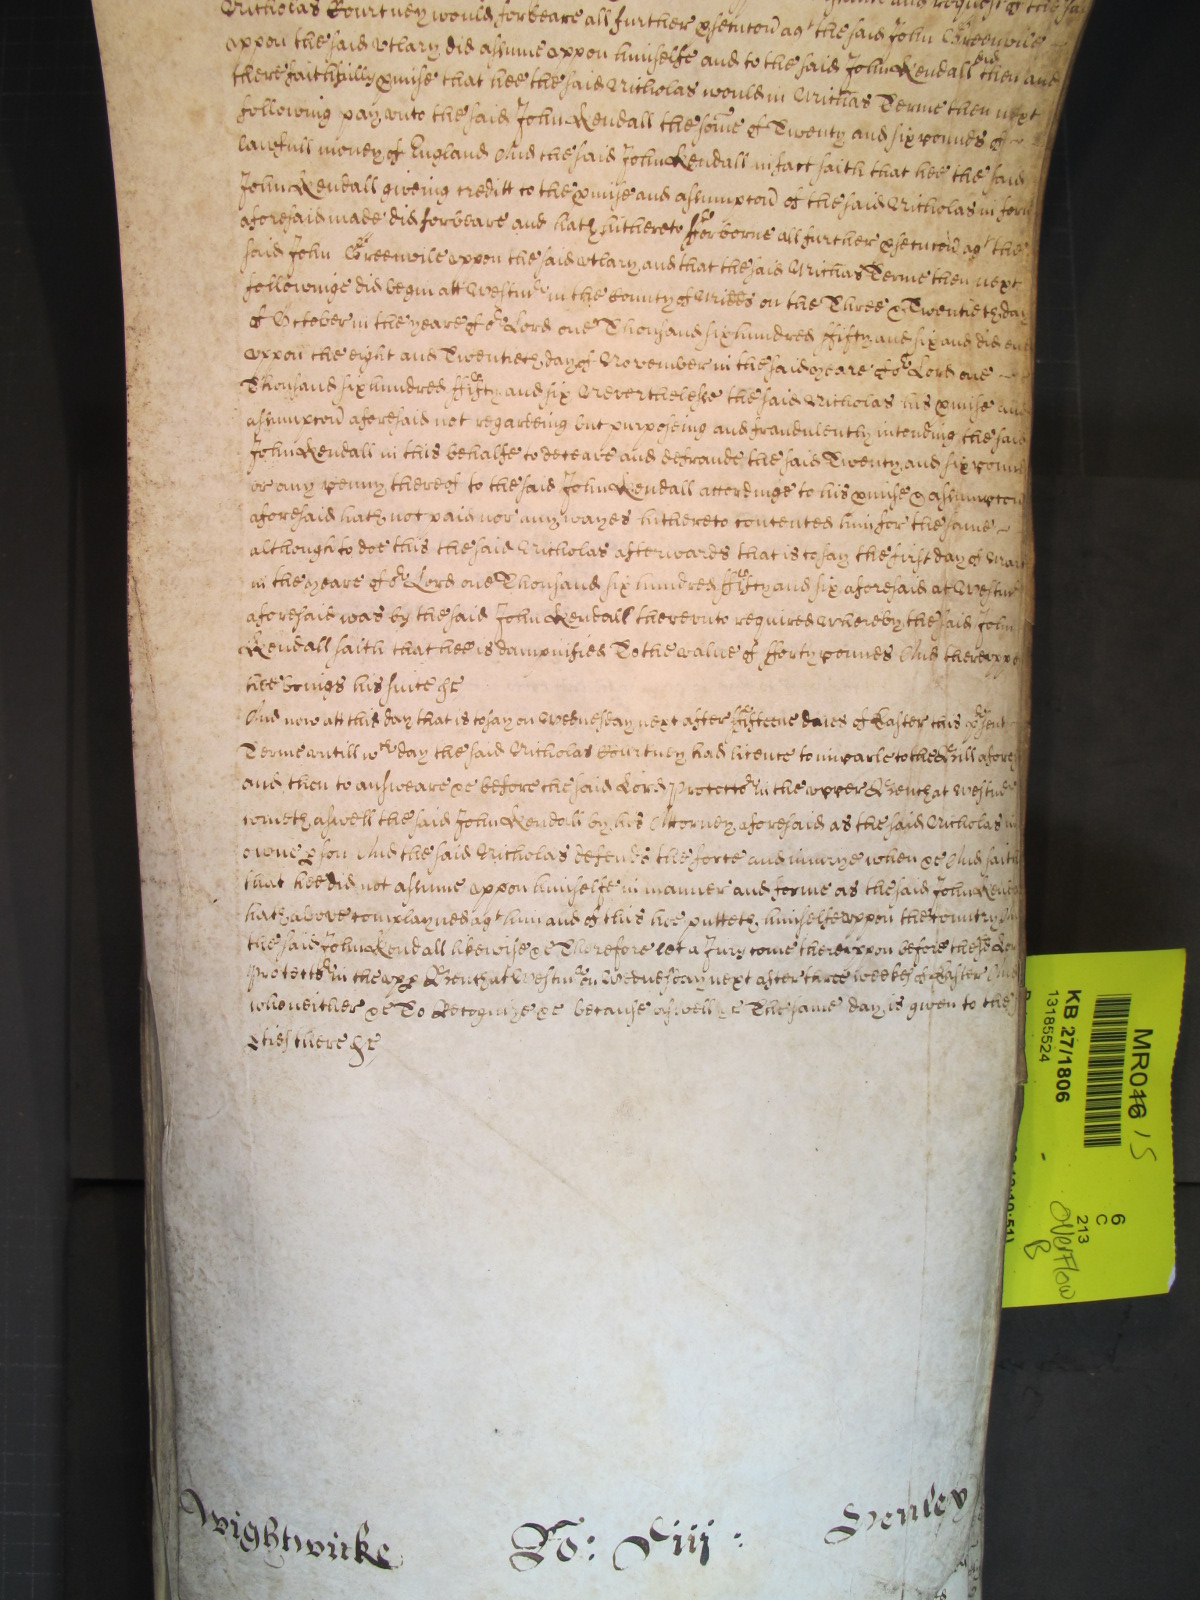 Nicholas Courtney would forbeare all further psecucon agt the said John Greenvile
uppon the said utlary did assume uppon himselfe and to the said John Kendall did then and
there faithfully pmise that hee the said Nicholas would in Michas Terme then next
following pay unto the said John Kendall the some of Twenty and six pounds of
lawfull money of England And the said John Kendall in fact saith that hee the said
John Kendall giving creditt to the pmise and assumpcon of the said Nicholas in form
aforesaid made did forbeare and hath hitherto forborne all further psecucon agt the
said John Greenvile uppon the said utlary and that the said Michas Terme then next
followinge did begin att Westmr in the County of Midds on the Three & Twentieth day
of October in the yeare of or Lord one Thousand six hundred fifty and six and did end
uppon the eight and Twentieth day of November in the said yeare of or Lord one
Thousand six hundred fifty and six Neverthelesse the said Nicholas his pmise and
assumpcon aforesaid not regarding but purposeing and fraudulently intending the said
John Kendall in this behalfe to deceave and defraude the said Twenty and six pounds
or any penny thereof to the said John Kendall accordinge to his pmise & assumpcon
aforesaid hath not paid nor any wayes hitherto contented him for the same
although to doe this the said Nicholas afterwards that is to say the first day of
in the yeare of or Lord one Thousand six hundred fifty and six aforesaid at Westmr
aforesaid was by the said John Kendall thereunto required Whereby the said John
Kendall saith that hee is dampnified To the value of forty pounds And thereuppo
hee brings his suite &c
And now att this day that is to say on Wednesday next after fifteene daies of Easter this psent
Terme untill wch day the said Nicholas Courtney had licence to imparle to the Bill afores
and then to answeare &c before the said Lord Protector in the upper Bench at Westmr
cometh aswell the said John Kendall by his Attorney aforesaid as the said Nicholas in
owne pson And the said Nicholas defends the force and iniurye when &c And saith
that hee did not assume uppon himselfe in manner and forme as the said John Kend
hath above complayned agt him and of this hee putteth himselfe uppon the Country And
the said John Kendall likewise &c Therefore let a Jury come thereuppon before the sd Lord
Protector in the upp Bench at Westmr on Wednesday next after three weekes of Easter And
who neither &c To Recognize &c because aswell &c The same day is given to the
pties there &c
Wightwicke Ro: Liij : Henley
MR046 15
KB 27/1806
13185524
6
C
213
Overflow
B